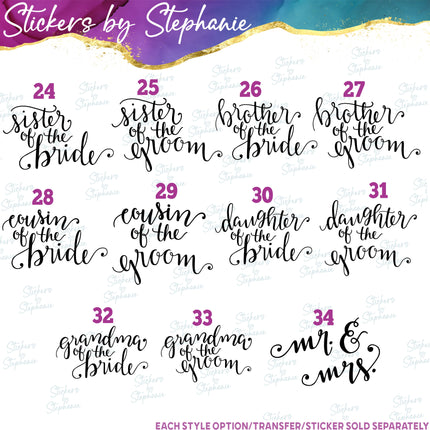 Stickers by Stephanie
24 25 26 27
sister of the bride
sister of the groom
brother of the bride
brother of the groom
28 29 30 31
cousin of the bride
cousin of the groom
daughter of the bride
daughter of the groom
32 33 34
grandma of the bride
grandma of the groom
mr. & mrs.
EACH STYLE OPTION/TRANSFER/STICKER SOLD SEPARATELY